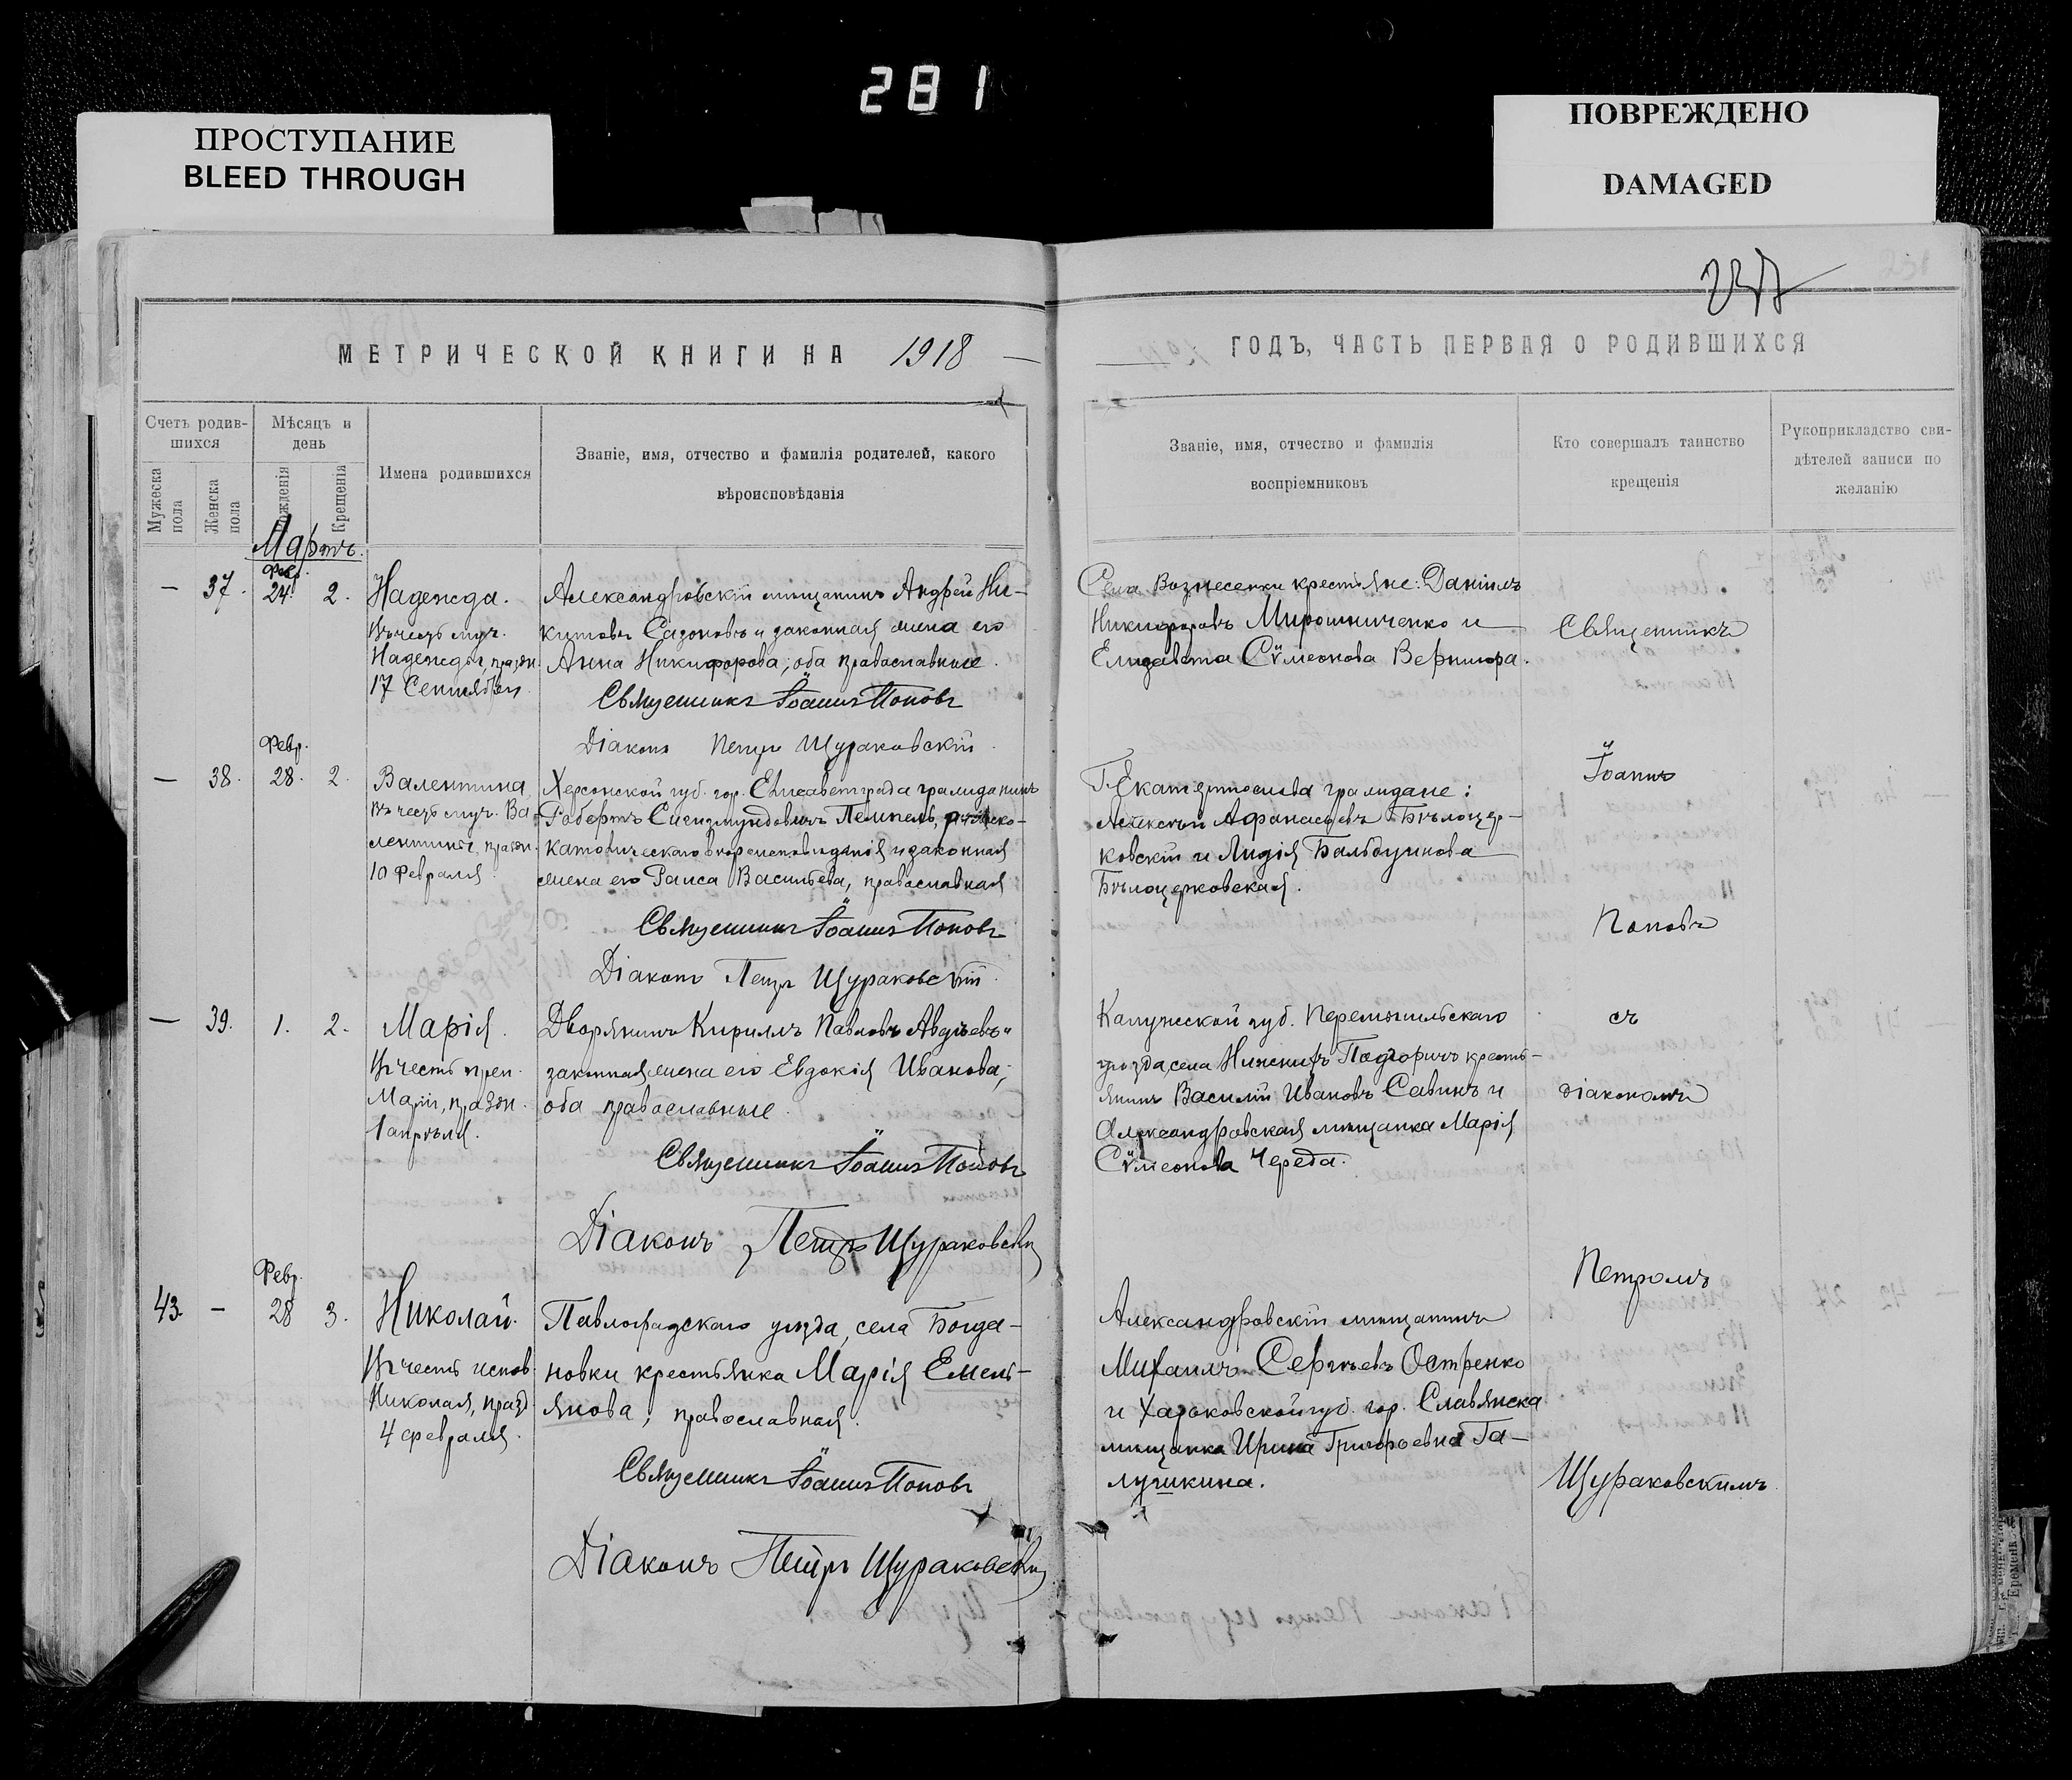 281
ПРОСТУПАНИЕ
BLEED THROUGH
ПОВРЕЖДЕНО
DAMAGED
МЕТРИЧЕСКОЙ КНИГИ НА 1918
ГОДЪ, ЧАСТЬ ПЕРВАЯ О РОДИВШИХСЯ
Счетъ родив-
шихся
Мужеска
пола
Женска
пола
Мѣсяцъ и
день
Рожденія
Крещенія
Имена родившихся
Званіе, имя, отчество и фамилія родителей, какого
вѣроисповѣданія
Званіе, имя, отчество и фамилія
воспріемниковъ
Кто совершалъ таинство
крещенія
Рукоприкладство сви-
дѣтелей записи по
желанію
Мартъ.
— 37. Февр. 24. 2.
Надежда.
Въ честь муч.
Надежды, праздн.
17 Сентября
Александровскій мѣщанинъ Андрей Ни-
китовъ Сазоновъ и законная жена его
Анна Никифорова; оба православные.
Священникъ Іоаннъ Поповъ
Діаконъ Петръ Щураковскій
Села Вознесенки крестьяне: Даніилъ
Никифоровъ Мирошниченко и
Елизавета Сѵмеонова Вернигора.
— 38. Февр. 28. 2.
Валентина
Въ честь муч. Ва-
лентины, праздн.
10 Февраля
Херсонской губ. гор. Елисаветграда гражданинъ
Робертъ Сигизмундовичъ Лемпель, римско-
католическаго вѣроисповѣданія и законная
жена его Раиса Васильева, православная
Священникъ Іоаннъ Поповъ
Діаконъ Петръ Щураковскій
Г. Екатеринослава граждане:
Алексѣй Афанасьевъ Бѣлоцер-
ковскій и Лидія
Бѣлоцерковская.
— 39. 1. 2.
Марія.
Въ честь преп.
Маріи, праздн.
1 апрѣля.
Дворянинъ Кириллъ Павловъ Авдѣевъ и
законная жена его Евдокія Иванова;
оба православные.
Священникъ Іоаннъ Поповъ
Діаконъ Петръ Щураковскій
Калужской губ. Перемышльскаго
уѣзда, села Нижнихъ Подгоричъ кресть-
янинъ Василій Ивановъ Савинъ и
Александровская мѣщанка Марія
Сѵмеонова Череда.
43. — Февр. 28 3.
Николай.
Въ честь испов.
Николая, празд.
4 февраля.
Павлоградскаго уѣзда, села Богда-
новки крестьянка Марія Емель-
янова; православная.
Священникъ Іоаннъ Поповъ
Діаконъ Петръ Щураковскій
Александровскій мѣщанинъ
Михаилъ Сергѣевъ Остренко
и Харьковской губ. гор. Славянска
мѣщанка Ирина Григорьевна Га-
лушкина.
Священникъ
Іоаннъ
Поповъ
съ
діакономъ
Петромъ
Щураковскимъ